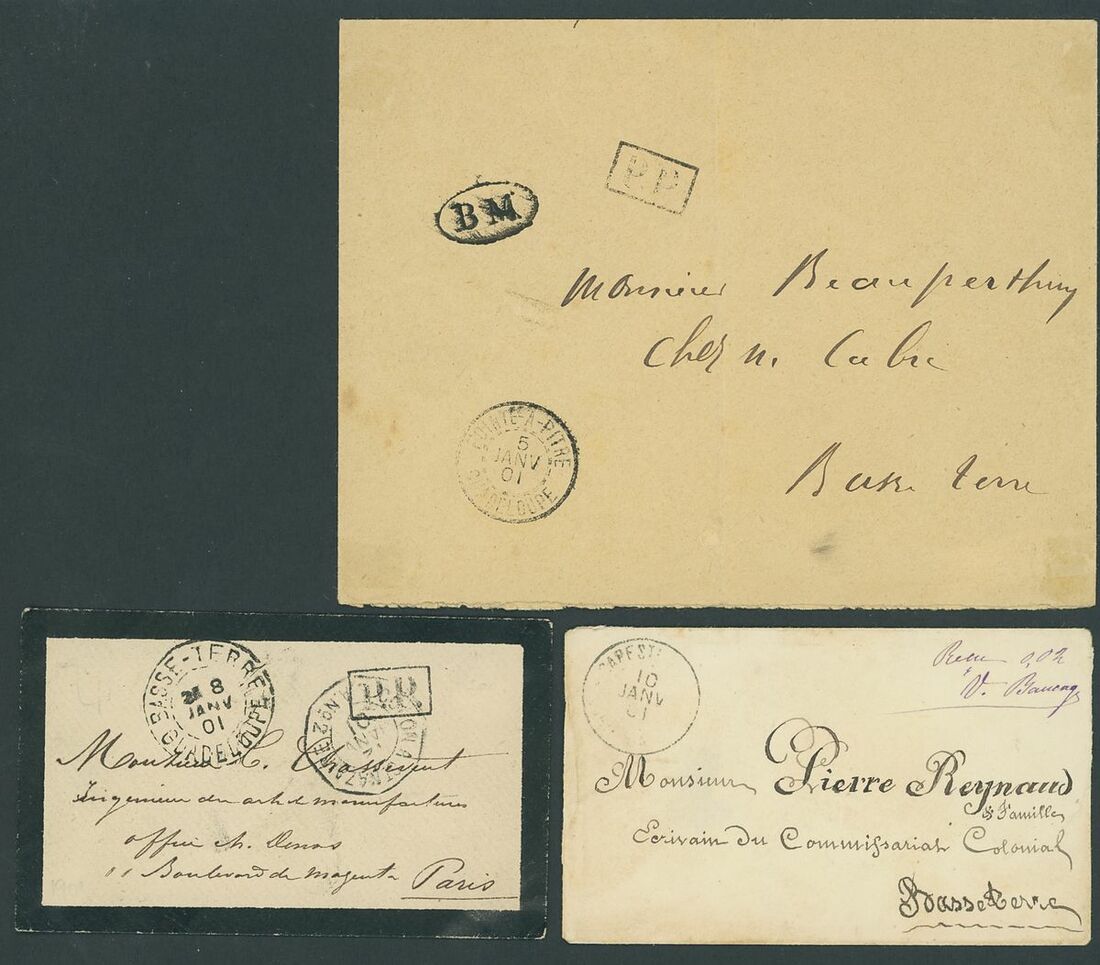 P.P
BM
Monsieur Beauperthuy
chez M. Cabre
Basse terre
POINTE-A-PITRE
5
JANV
01
GUADELOUPE
BASSE-TERRE
8
JANV
01
GUADELOUPE
P.P.
Monsieur C. Chassevent
Ingenieur des arts & manufactures
office
11 Boulevard de Magenta Paris
CAPEST
10
JANV
01
Reçu 0,02
V.
Monsieur Pierre Reynaud
& Famille
Ecrivain du Commissariat Colonial
Basseterre